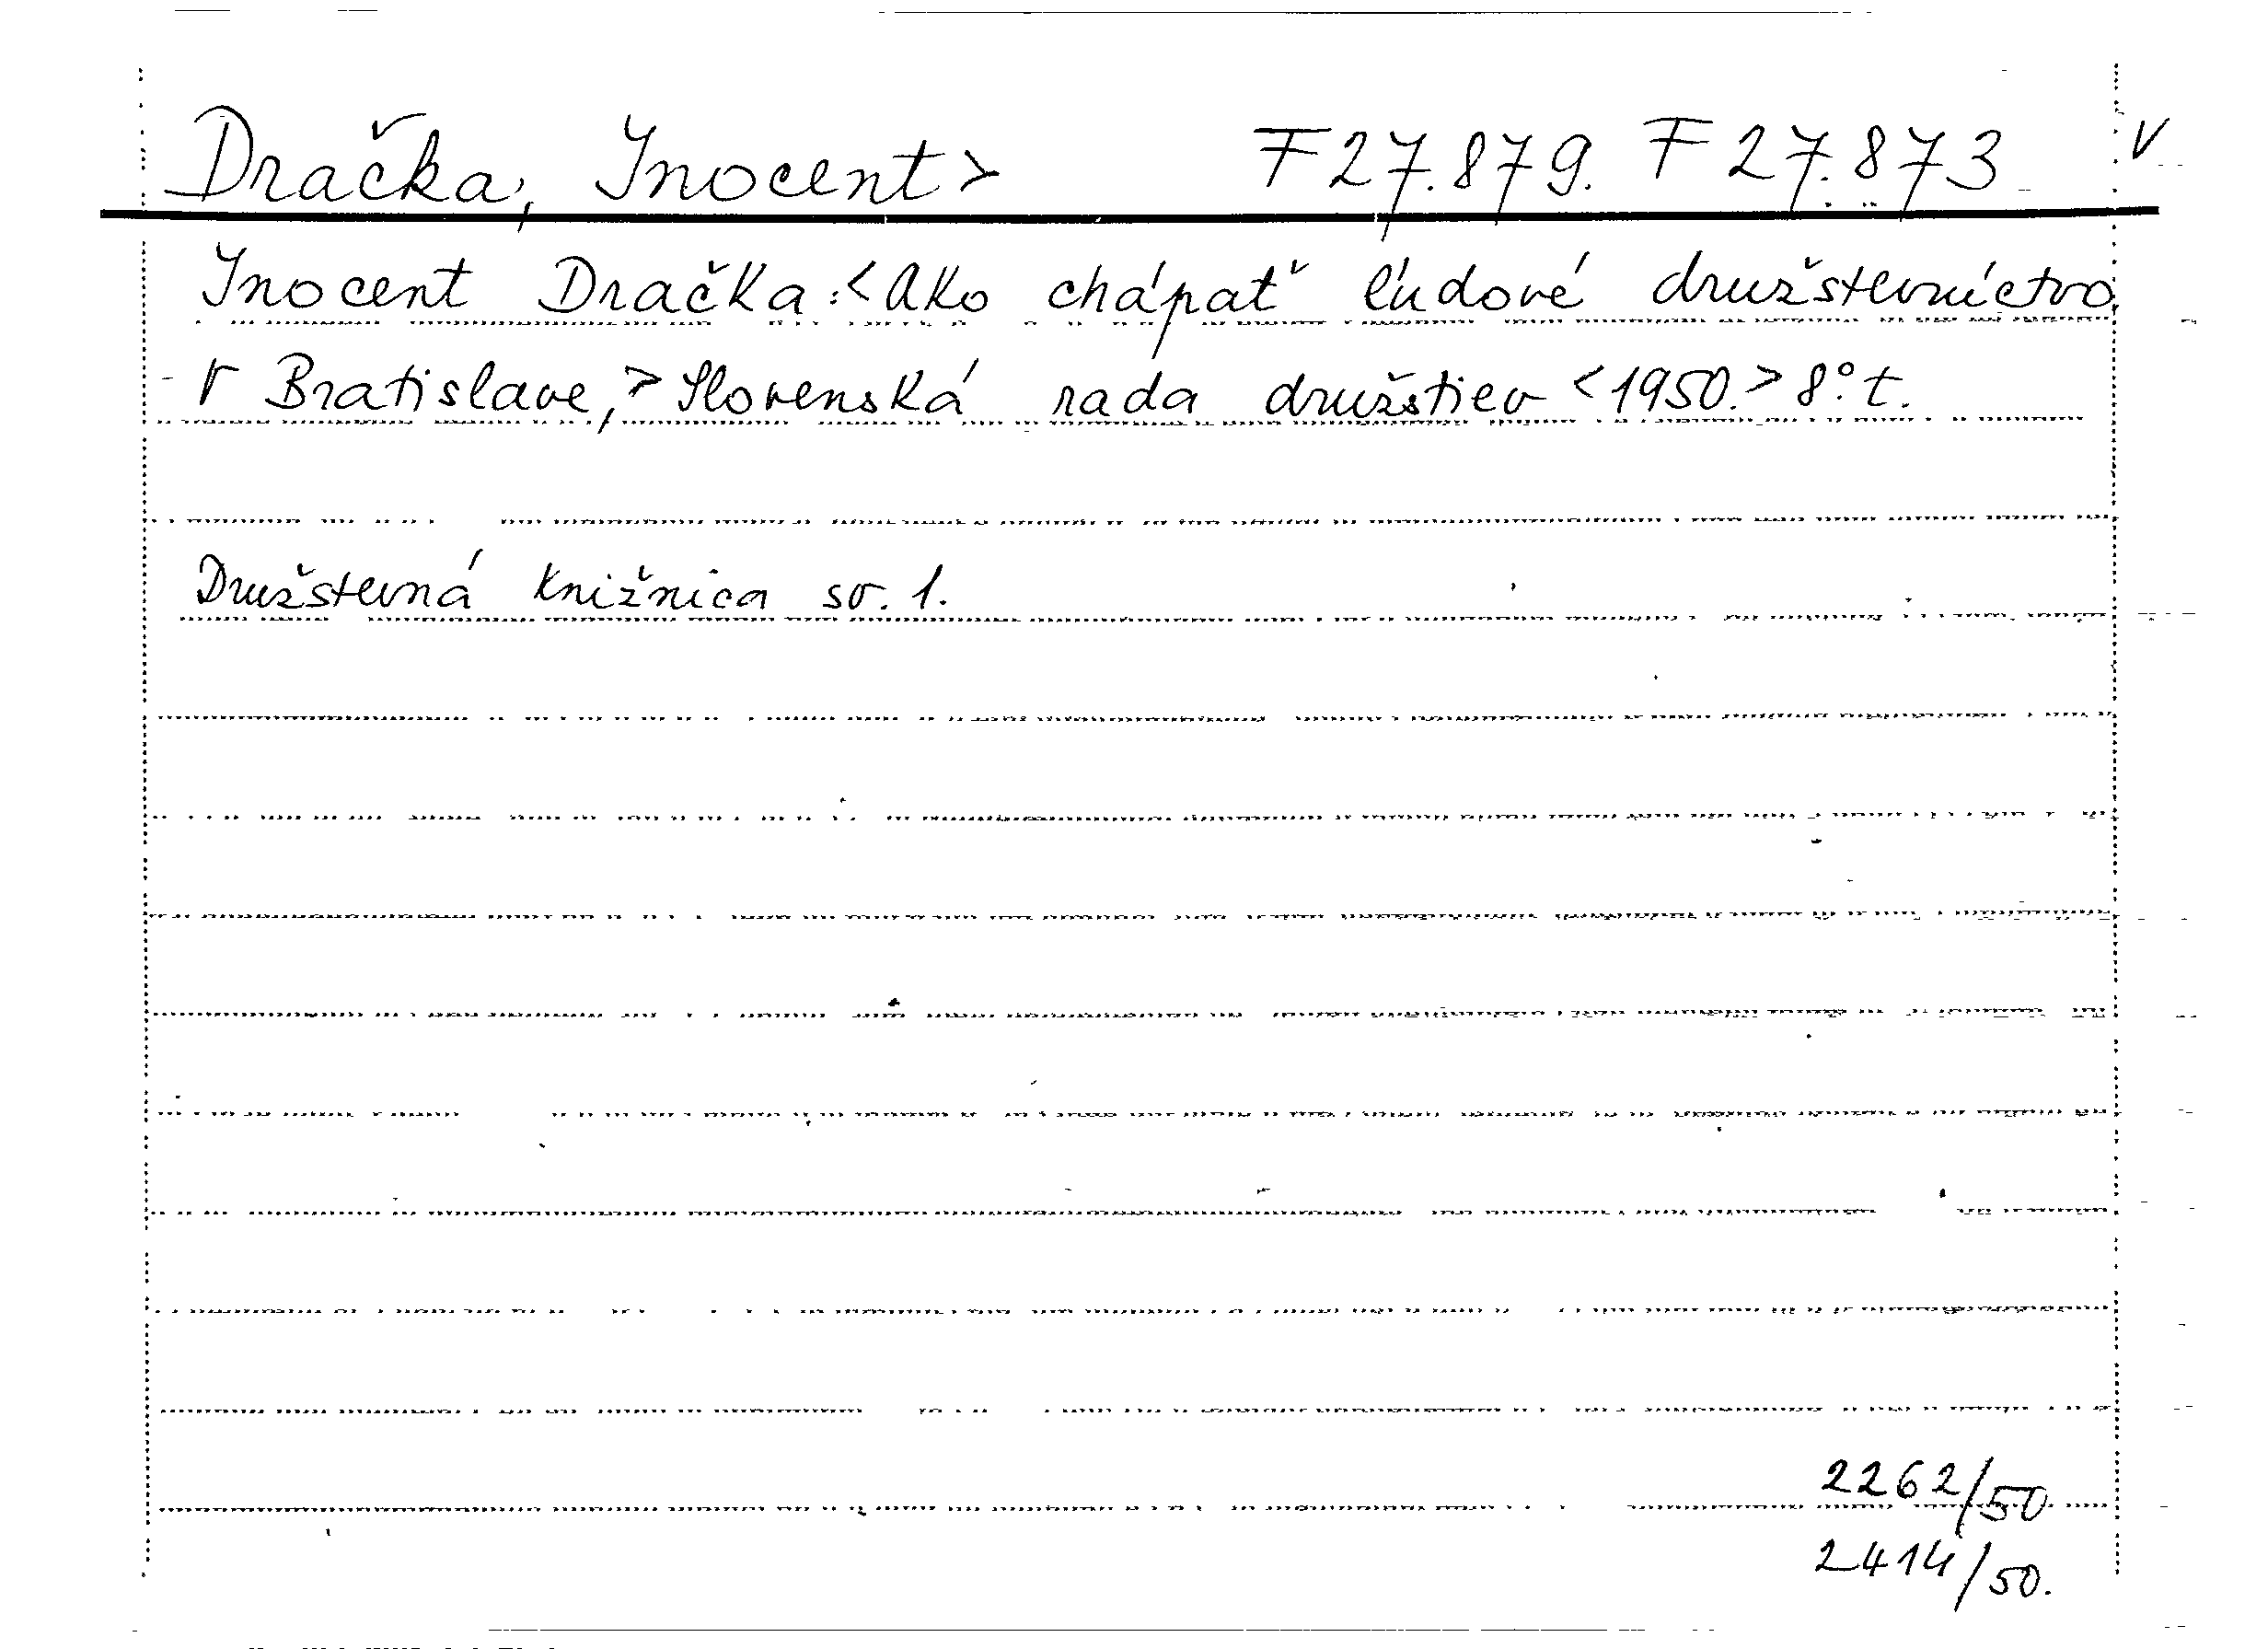 Dračka, Inocent> F 27.879. F 27.873 V
Inocent Dračka:<Ako chápať ľudové družstevníctvo.
V Bratislave,> Slovenská rada družstiev <1950.> 8° t.
Družstevná knižnica sv. 1.
2262/50
2414/50.